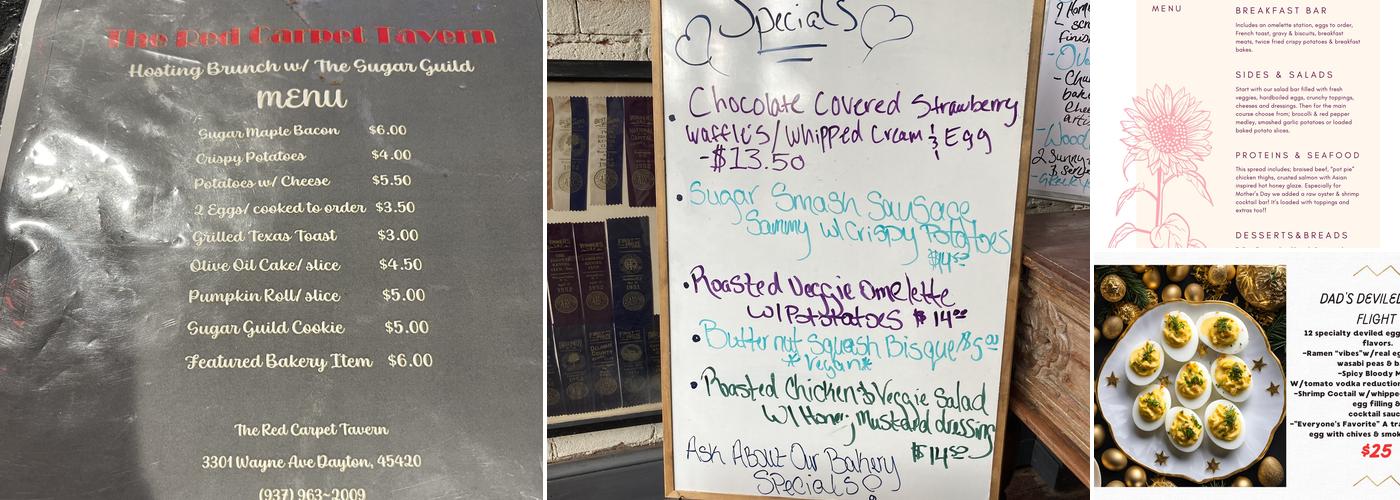 The Red Carpet Tavern
Hosting Brunch w/ The Sugar Guild
MENU
Sugar Maple Bacon $6.00
Crispy Potatoes $4.00
Potatoes w/ Cheese $5.50
2 Eggs/ cooked to order $3.50
Grilled Texas Toast $3.00
Olive Oil Cake/ slice $4.50
Pumpkin Roll/ slice $5.00
Sugar Guild Cookie $5.00
Featured Bakery Item $6.00
The Red Carpet Tavern
3301 Wayne Ave Dayton, 45420
(937) 963-2009
Specials
• Chocolate Covered Strawberry
Waffle's/Whipped Cream & Egg
-$13.50
• Sugar Smash Sausage
Sammy w/Crispy Potatoes
$14.50
• Roasted Veggie Omelette
w/Potatoes $14.00
• Butternut Squash Bisque $5.00
*Vegan*
• Roasted Chicken & Veggie Salad
w/ Honey Mustard dressing
$14.50
Ask About Our Bakery
Specials
MENU
BREAKFAST BAR
Includes an omelette station, eggs to order,
French toast, gravy & biscuits, breakfast
meats, twice fried crispy potatoes & breakfast
bakes.
SIDES & SALADS
Start with our salad bar filled with fresh
veggies, hardboiled eggs, crunchy toppings,
cheeses and dressings. Then for the main
course choose from; brocolli & red pepper
medley, smashed garlic potatoes or loaded
baked potato slices.
PROTEINS & SEAFOOD
This spread includes; braised beef, "pot pie"
chicken thighs, crusted salmon with Asian
inspired hot honey glaze. Especially for
Mother's Day we added a raw oyster & shrimp
cocktail bar! It's loaded with toppings and
extras too!!
DESSERTS&BREADS
DAD'S DEVILED
FLIGHT
12 specialty deviled egg
flavors.
-Ramen "vibes"w/real eg
wasabi peas & b
-Spicy Bloody M
W/tomato vodka reduction
-Shrimp Coctail w/whippe
egg filling &
cocktail sauc
-"Everyone's Favorite" A tra
egg with chives & smok
$25